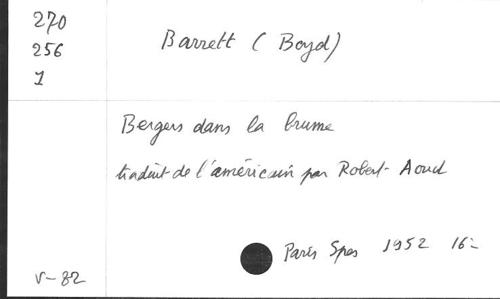 270
256
1
Barrett (Boyd)
Bergers dans la brume
traduit de l'américain par Robert Aoud
Paris Spes 1952 16=
V-82